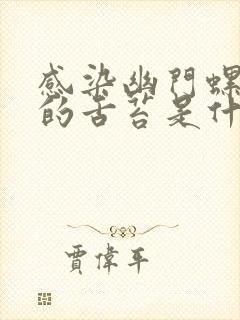 感染幽門螺
的舌苔是什
賈偉平